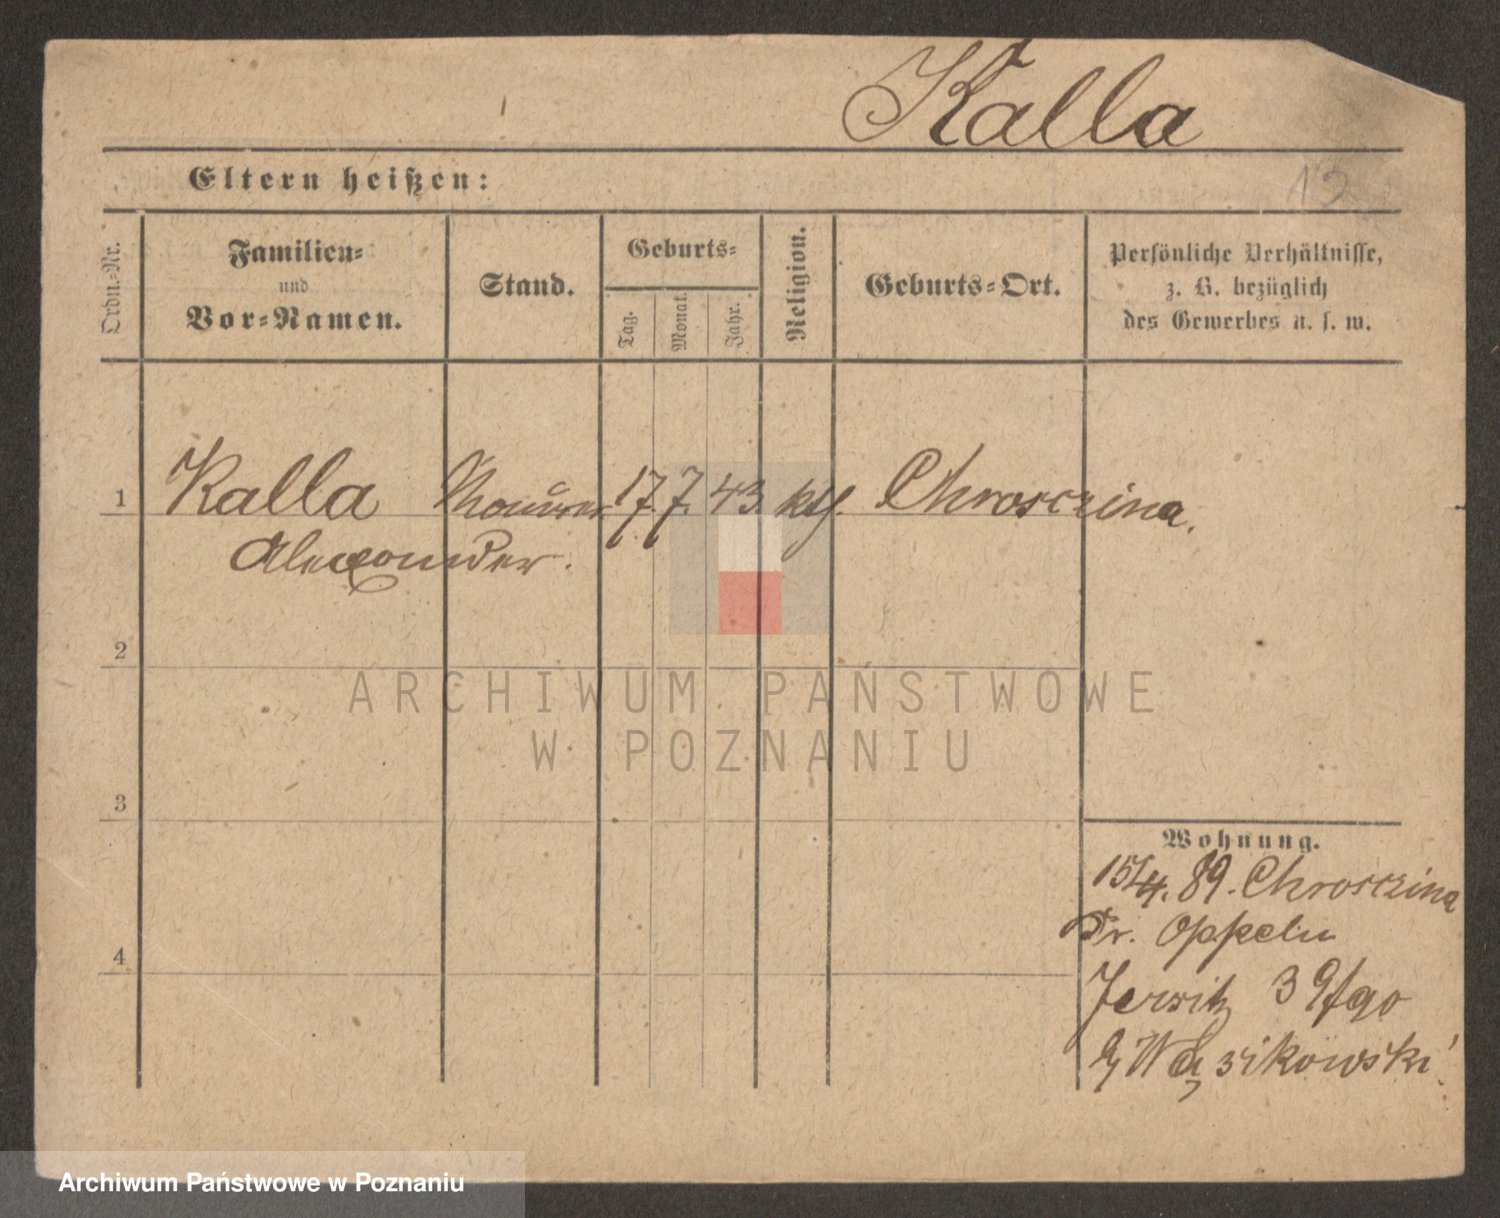 Kalla
13
Eltern heißen:
Ordn.-Nr.
Familien-
und
Vor-Namen.
Stand.
Geburts-
Tag.
Monat.
Jahr.
Religion.
Geburts-Ort.
Persönliche Verhältnisse,
z. B. bezüglich
des Gewerbes u. s. w.
1 Kalla Maurer 17. 7. 43 kth. Chrosczina.
Alexander.
2
ARCHIWUM PAŃSTWOWE
W POZNANIU
3
Wohnung.
15/4. 89. Chrosczina
Kr. Oppeln
4
Jersitz 39
Archiwum Państwowe w Poznaniu